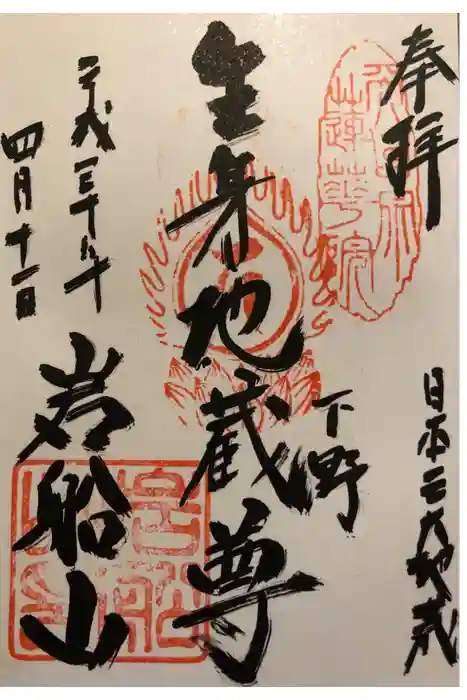 奉拝
日本三大地蔵
下野
生身地蔵尊
岩船山
平成三十年
四月十一日
蓮華院